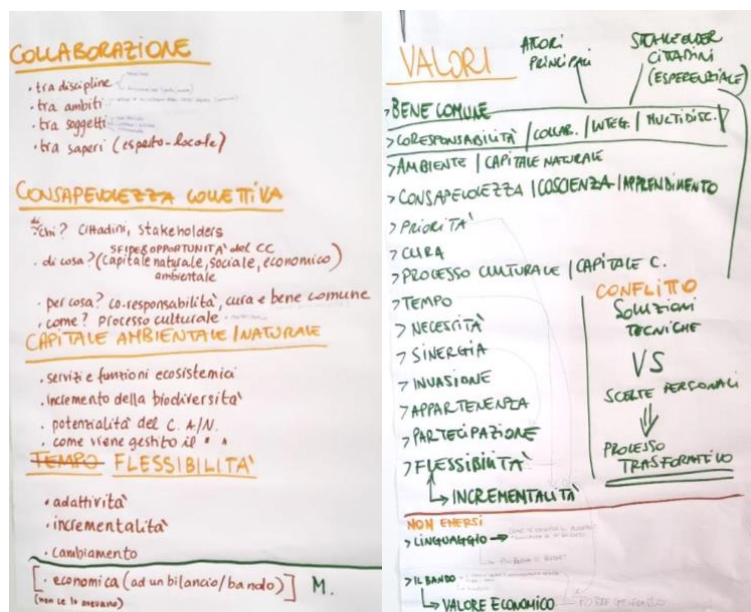 COLLABORAZIONE
• tra discipline
• tra ambiti
• tra soggetti
• tra saperi (esperto-locale)
CONSAPEVOLEZZA COLLETTIVA
di chi? Cittadini, stakeholders
SFIDE & OPPORTUNITA' del CC
• di cosa? (Capitale naturale, sociale, economico)
ambientale
• per cosa? co-responsabilità, cura e bene comune
• come? Processo culturale
CAPITALE AMBIENTALE/NATURALE
• servizi e funzioni ecosistemici
• incremento della biodiversità
• potenzialità del C. A/N.
• come viene gestito il " "
TEMPO FLESSIBILITA'
• adattività
• incrementalità
• cambiamento
[• economica (ad un bilancio/bando)] M.
(non ce lo aveano)
VALORI
ATTORI PRINCIPALI
STAKEHOLDER
CITTADINI
(ESPERENZIALE)
> BENE COMUNE
> CORESPONSABILITÀ / COLLAB. / INTEG. / MULTIDISC.
> AMBIENTE / CAPITALE NATURALE
> CONSAPEVOLEZZA / COSCIENZA / APPRENDIMENTO
> PRIORITA'
> CURA
> PROCESSO CULTURALE / CAPITALE C.
> TEMPO
> NECESSITÀ
> SINERGIA
> INVASIONE
> APPARTENENZA
> PARTECIPAZIONE
> FLESSIBILITÀ
INCREMENTALITÀ
CONFLITTO
SOLUZIONI
TECNICHE
VS
SCELTE PERSONALI
PROCESSO
TRASFORMATIVO
NON EMERSI
> LINGUAGGIO
> IL BANDO
VALORE ECONOMICO